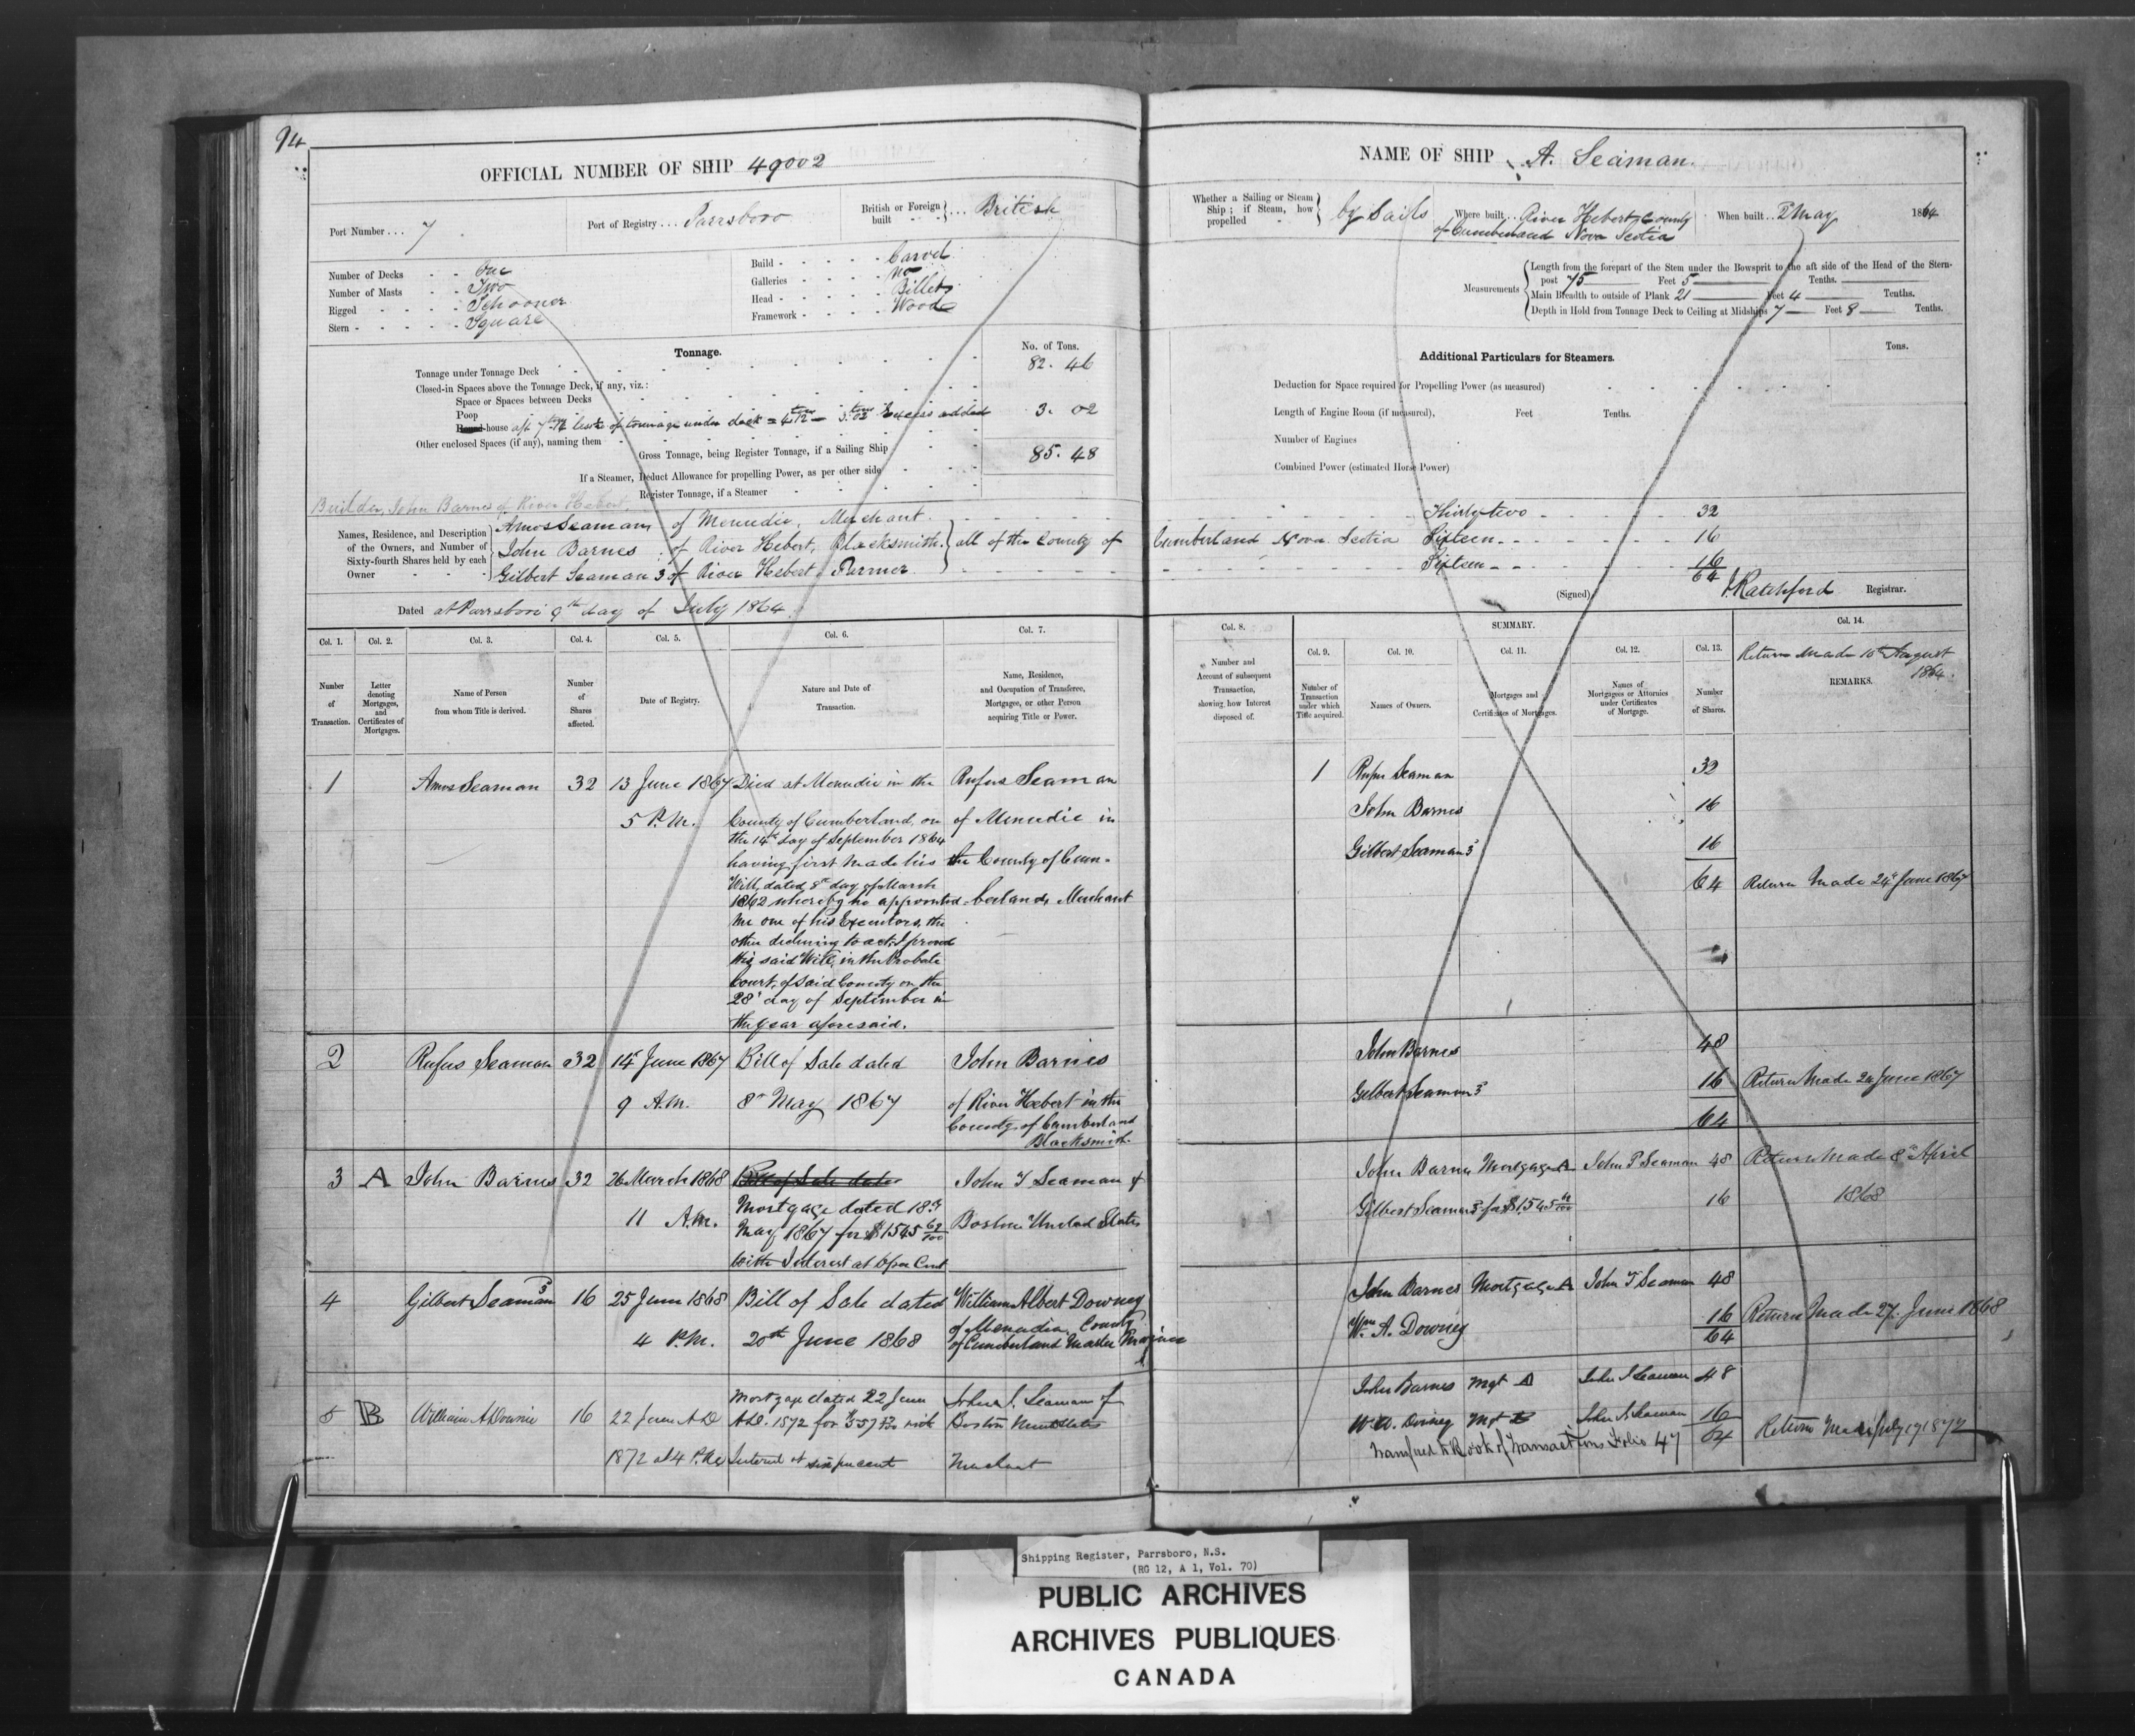 94
OFFICIAL NUMBER OF SHIP 49002
Port Number . . . 7
Port of Registry . . . Parrsboro
British or Foreign built . . . British
Number of Decks - - One
Number of Masts - - Two
Rigged - - - - Schooner
Stern - - - - - Square
Build - - - - - Carvel
Galleries - - - - No
Head - - - - - Billets
Framework - - - - Wood
Tonnage.
No. of Tons.
Tonnage under Tonnage Deck 82. 46
Closed-in Spaces above the Tonnage Deck, if any, viz.:
Space or Spaces between Decks
Poop
Round-house
of tonnage under deck = Excess added 3. 02
Other enclosed Spaces (if any), naming them
Gross Tonnage, being Register Tonnage, if a Sailing Ship 85. 48
If a Steamer, Deduct Allowance for propelling Power, as per other side
Register Tonnage, if a Steamer
Builder, John Barnes of River Hebert.
Names, Residence, and Description of the Owners, and Number of Sixty-fourth Shares held by each Owner
Amos Seaman of Menudie, Merchant.
John Barnes of River Hebert, Blacksmith. all of the County of
Gilbert Seaman 3 of River Hebert Farmer
Dated at Parrsboro 9th day of July 1864.
NAME OF SHIP A. Seaman.
Whether a Sailing or Steam Ship ; if Steam, how propelled by Sails
Where built . . River Hebert County
of Cumberland Nova Scotia
When built . . May 1864
Measurements
Length from the forepart of the Stem under the Bowsprit to the aft side of the Head of the Stern-
post 75 Feet 5 Tenths.
Main Breadth to outside of Plank 21 Feet 4 Tenths.
Depth in Hold from Tonnage Deck to Ceiling at Midships 7 Feet 8 Tenths.
Additional Particulars for Steamers.
Tons.
Deduction for Space required for Propelling Power (as measured)
Length of Engine Room (if measured), Feet Tenths.
Number of Engines
Combined Power (estimated Horse Power)
Thirty two 32
Cumberland Nova Scotia Sixteen 16
Sixteen 16
64
(Signed) Ratchford Registrar.
Col. 1.
Number of Transaction.
Col. 2.
Letter denoting Mortgages, and Certificates of Mortgages.
Col. 3.
Name of Person from whom Title is derived.
Col. 4.
Number of Shares affected.
Col. 5.
Date of Registry.
Col. 6.
Nature and Date of Transaction.
Col. 7.
Name, Residence, and Occupation of Transferee, Mortgagee, or other Person acquiring Title or Power.
Col. 8.
Number and Account of subsequent Transaction, showing how Interest disposed of.
SUMMARY.
Col. 9.
Number of Transaction under which Title acquired.
Col. 10.
Names of Owners.
Col. 11.
Mortgages and Certificates of Mortgages.
Col. 12.
Names of Mortgagees or Attornies under Certificates of Mortgage.
Col. 13.
Number of Shares.
Col. 14.
Return Made 10th August
1864.
REMARKS.
1
Amos Seaman
32
13 June 1867
5 P.M.
Died at Menudie in the
County of Cumberland, on
the 14th day of September 1864
having first made his
Will, dated 8th day of March
1862 whereby he appointed
me one of his Executors, the
other declining to act, I proved
this said Will, in the Probate
Court, of said County on the
28th day of September in
the year aforesaid.
Rufus Seaman
of Menudie in
the County of Cum-
berland, Merchant
1 Rufus Seaman 32
John Barnes 16
Gilbert Seaman 3 16
64
Return Made 24th June 1867
2
Rufus Seaman
32
14th June 1867
9 A.M.
Bill of Sale dated
8th May 1867
John Barnes
of River Hebert in the
County of Cumberland
Blacksmith
John Barnes 48
Gilbert Seaman 3 16
64
Return Made 24 June 1867
3
A
John Barnes
32
26 March 1868
11 A.M.
Bill of Sale dated
Mortgage dated 18th
May 1867 for $1545 62/100
With Interest at 6 per Cent
John T Seaman of
Boston United States
John Barnes Mortgage A John T Seaman 48
Gilbert Seaman 3 for $1545 62/100 16
Return Made 8th April
1868
4
Gilbert Seaman 3
16
25 June 1868
4 P.M.
Bill of Sale dated
20th June 1868
William Albert Downey
of Menudie, County
of Cumberland Master Mariner
John Barnes Mortgage A John T Seaman 48
Wm A. Downey 16
64
Return Made 27. June 1868
5
B
William A Downie
16
22 June AD
1872 at 4 P.M.
Mortgage dated 22 June
A.D. 1872 for with
Interest at six per cent
John S. Seaman of
Boston United States
Merchant
John Barnes Mgt A John S Seaman 48
W. A. Downey Mgt B John S Seaman 16
64
Transferred to Book of Transactions Folio 47
Return Made July 17 1872
Shipping Register, Parrsboro, N.S.
(RG 12, A 1, Vol. 70)
PUBLIC ARCHIVES
ARCHIVES PUBLIQUES
CANADA